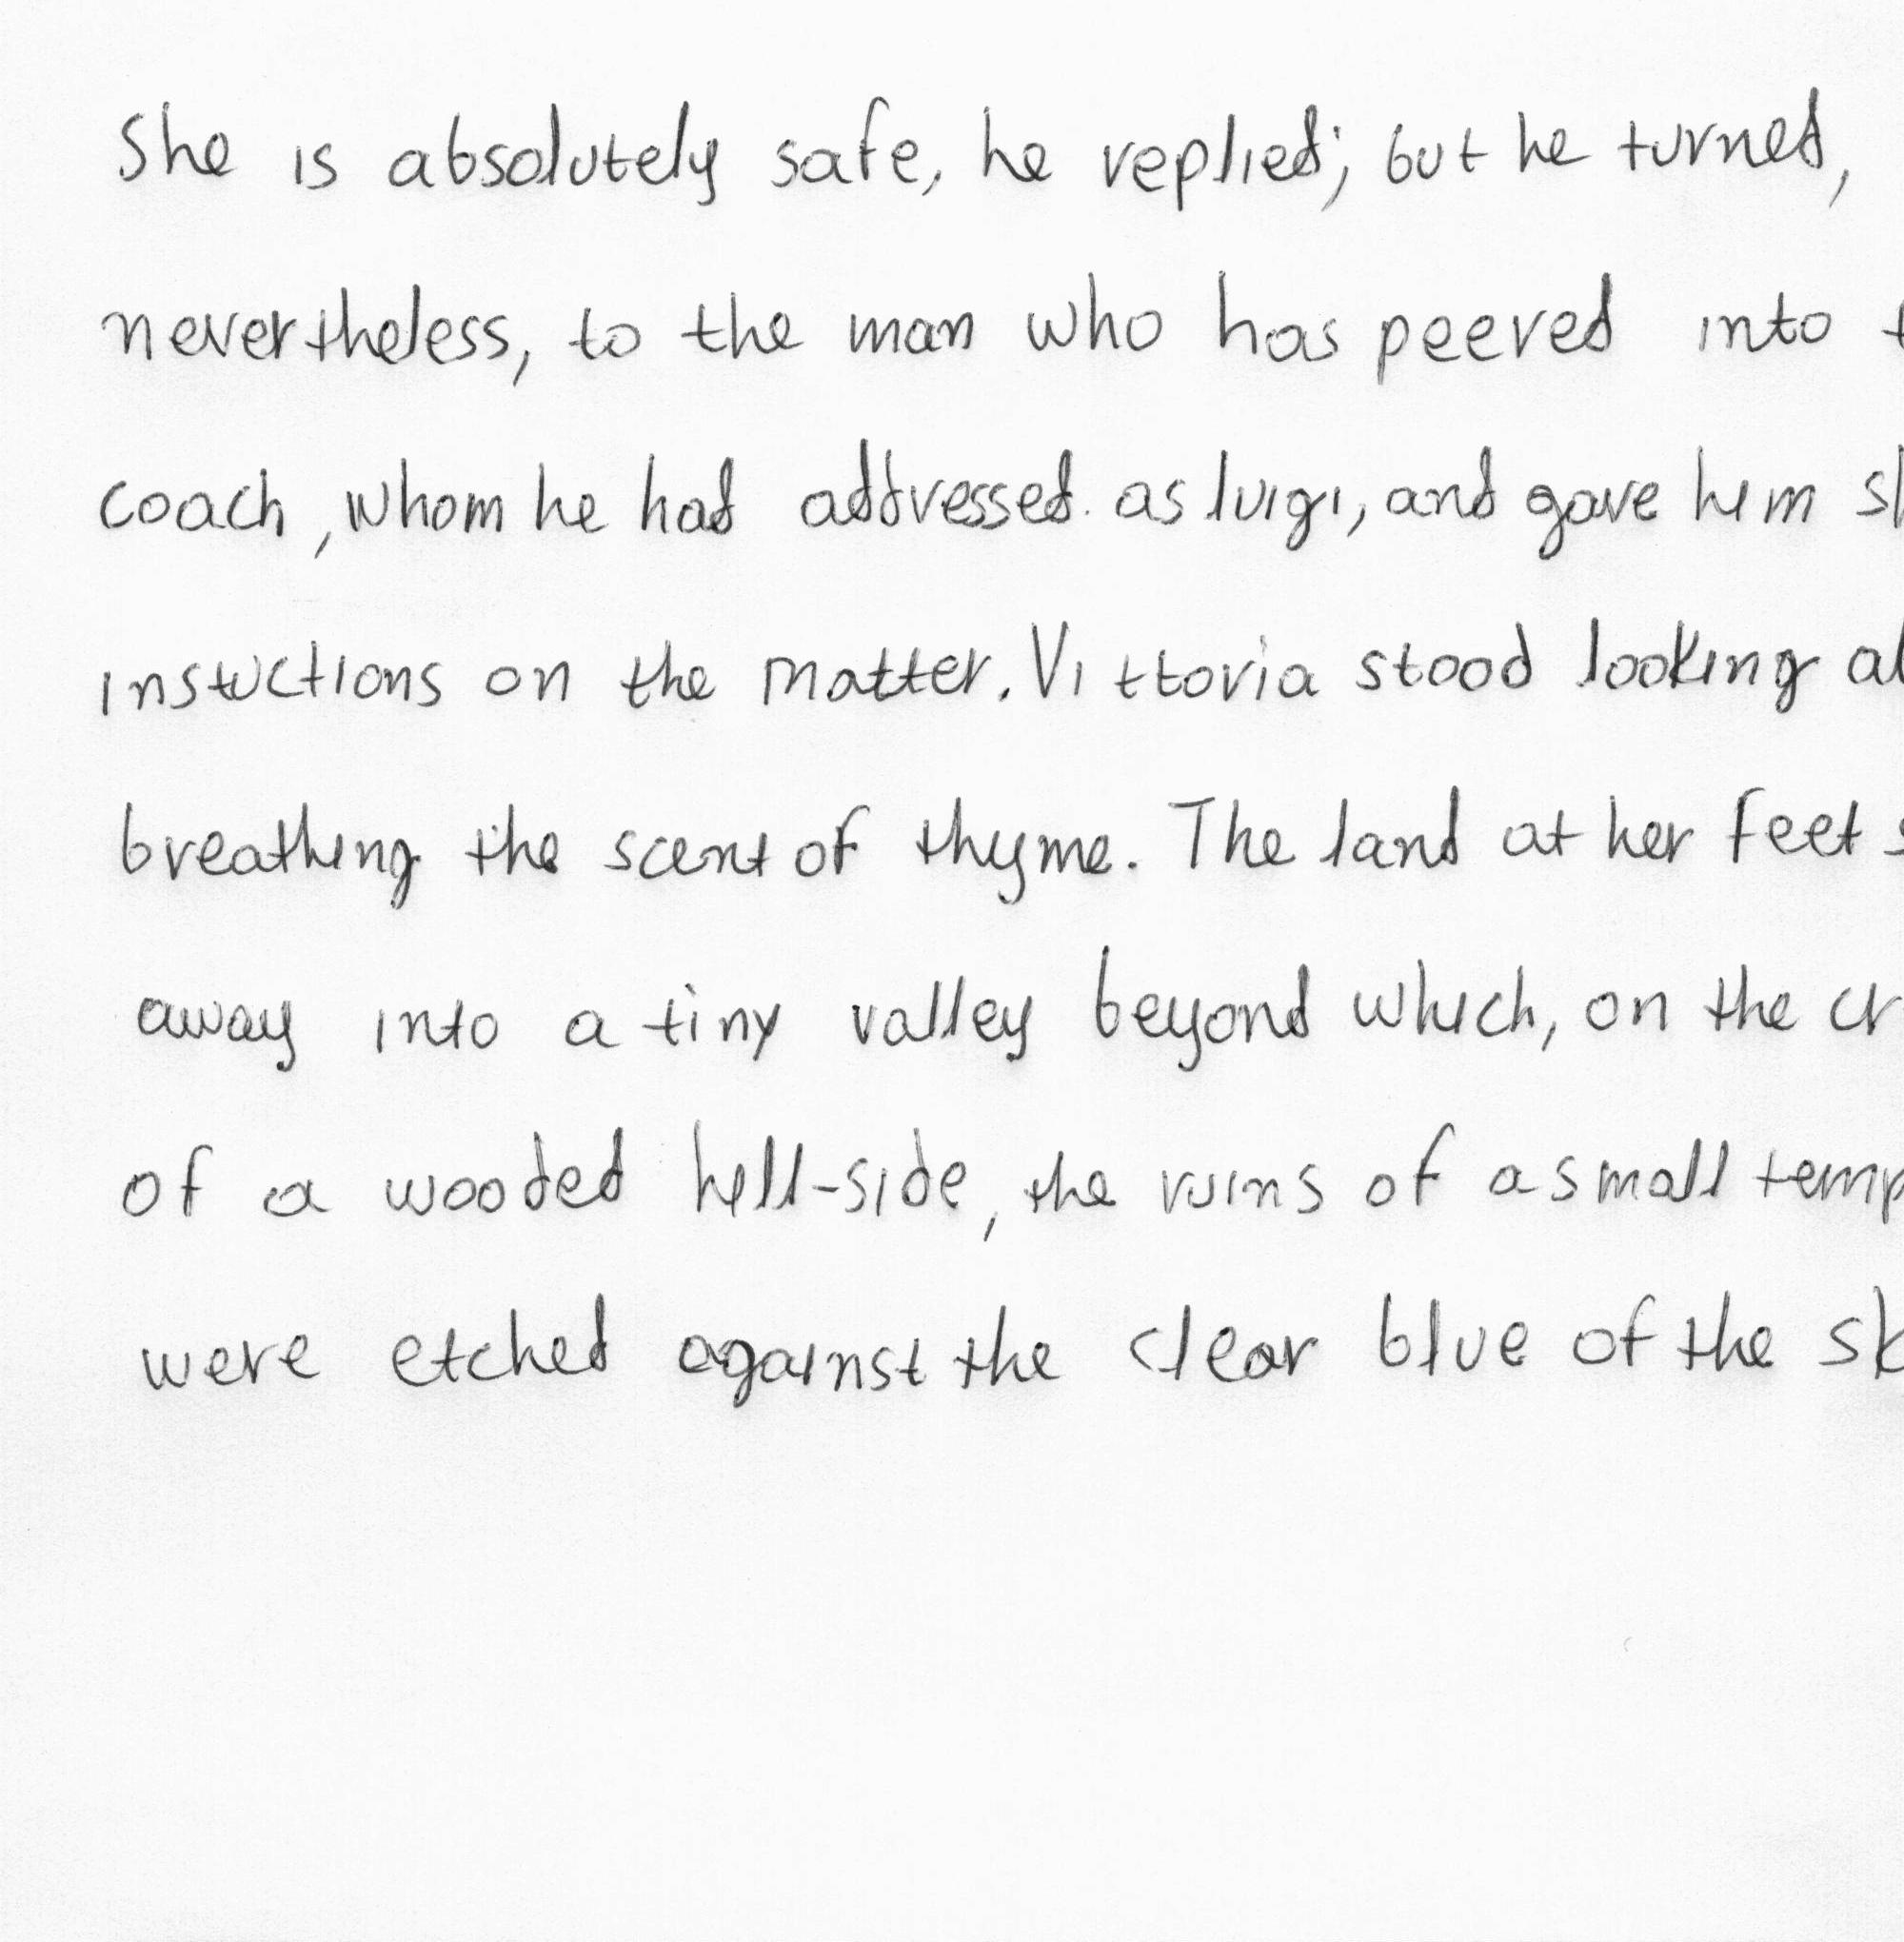 She is absolutely safe, he replied; but he turned,
nevertheless, to the man who has peered into
coach, whom he had addressed as luigi, and gave him
instuctions on the matter. Vittoria stood looking
breathing the scent of thyme. The land at her feet
away into a tiny valley beyond which, on the
of a wooded hill-side, the ruins of a small
were etched against the clear blue of the